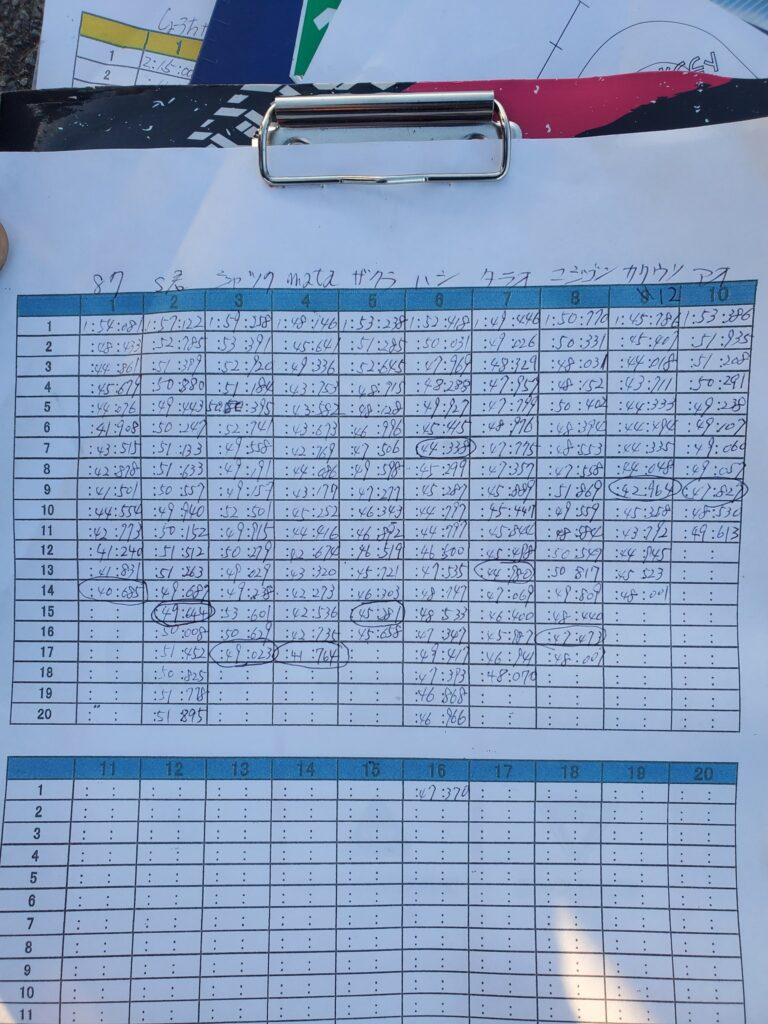 1
1 2:15:00
2
8ク S君 ジャック mata ザクラ ハシ タラオ コジゴン カクウソ アオ
1 2 3 4 5 6 7 8 12 10
1 1:54:081 1:57:122 1:59:258 1:48:146 1:53:238 1:52:418 1:49:446 1:50:770 1:45:786 1:53:386
2 :48:433 :52:785 :53:391 :45:641 :51:285 :50:031 :49:026 :50:331 :45:407 :51:935
3 :44:861 :51:389 :52:920 :49:336 :52:645 :47:969 :48:329 :48:031 :44:018 :51:208
4 :45:679 :50:880 :51:184 :43:753 :48:715 :48:288 :47:957 :48:152 :43:711 :50:291
5 :44:076 :49:443 :43:592 :48:128 :49:927 :47:779 :50:402 :44:333 :49:238
6 :41:908 :50:247 :52:741 :43:673 :46:996 :45:415 :48:976 :48:394 :44:484 :49:107
7 :43:515 :51:133 :49:558 :42:769 :47:506 :44:338 :47:775 :48:553 :44:335 :49:060
8 :42:878 :51:633 :49:191 :44:086 :49:598 :45:299 :47:357 :47:558 :44:048 :49:057
9 :41:501 :50:557 :49:157 :43:179 :47:277 :45:287 :45:889 :51:869 :42:964 :47:827
10 :44:554 :49:940 :52:501 :45:252 :46:343 :44:797 :45:447 :49:559 :45:358 :48:530
11 :42:773 :50:152 :49:915 :44:416 :46:892 :44:797 :45:844 :48:884 :43:792 :49:613
12 :41:240 :51:512 :50:279 :42:674 :46:519 :46:300 :45:488 :50:549 :44:845
13 :41:831 :51:263 :49:629 :43:320 :45:721 :47:535 :44:980 :50:817 :45:523
14 :40:685 :49:687 :49:238 :42:273 :46:303 :48:147 :47:069 :49:809 :48:001
15 :49:244 :53:601 :42:536 :45:281 :48:533 :46:400 :48:440
16 :50:008 :50:629 :42:735 :45:658 :47:347 :45:887 :47:473
17 :51:452 :49:023 :41:764 :49:417 :46:941 :48:009
18 :50:825 :47:393 :48:070
19 :51:778 :46:868
20 :51:895 :46:966
11 12 13 14 15 16 17 18 19 20
1 :47:370
2
3
4
5
6
7
8
9
10
11